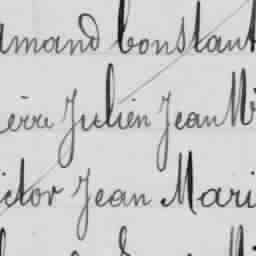 amand Constant
ierre Julien Jean Mi
ictor Jean Mari